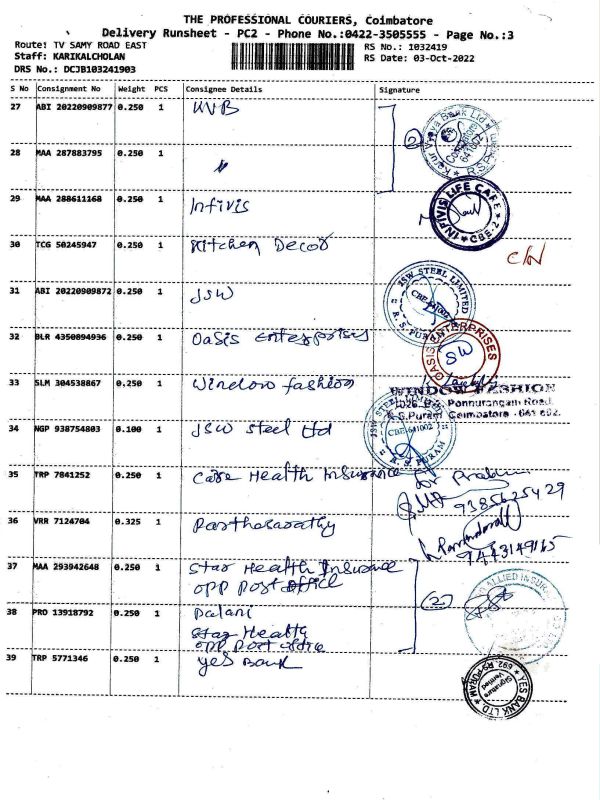 THE PROFESSIONAL COURIERS, Coimbatore
Delivery Runsheet - PC2 - Phone No.:0422-3505555 - Page No.:3
Route: TV SAMY ROAD EAST RS No.: 1032419
Staff: KARIKALCHOLAN RS Date: 03-Oct-2022
DRS No.: DCJB103241903
S No Consignment No Weight PCS Consignee Details Signature
27 ABI 20220909877 0.250 1 KVB
(2) Karur Vysya Bank Ltd Coimbatore 641002 R.S.Puram
28 MAA 287883795 0.250 1 "
29 MAA 288611168 0.250 1 Infivis
INFIVIS LIFE CARE CBE-2
30 TCG 50245947 0.250 1 Kitchen Decor
C/N
31 ABI 20220909872 0.250 1 JSW
JSW STEEL LIMITED CBE 641002 R. S. PURAM
32 BLR 4350894936 0.250 1 Oasis Enterprises
OASIS ENTERPRISES SW
33 SLM 304538867 0.250 1 Window fashion
WINDOW FASHION
Ponnurangam Road,
R.S.Puram Coimbatore - 641 002.
34 NGP 938754803 0.100 1 JSW Steel Ltd
JSW STEEL LIMITED CBE 641002 R. S. PURAM
35 TRP 7841252 0.250 1 Care Health Insurance
9385625429
36 VRR 7124704 0.325 1 Parthasarathy
9443149165
37 MAA 293942648 0.250 1 Star Health Insurance
opp post office
(2) ALLIED INSUR
38 PRO 13918792 0.250 1 Palani
Star Health
opp post office
39 TRP 5771346 0.250 1 Yes Bank
YES BANK LTD. 692, RS-PURAM Signature Verified